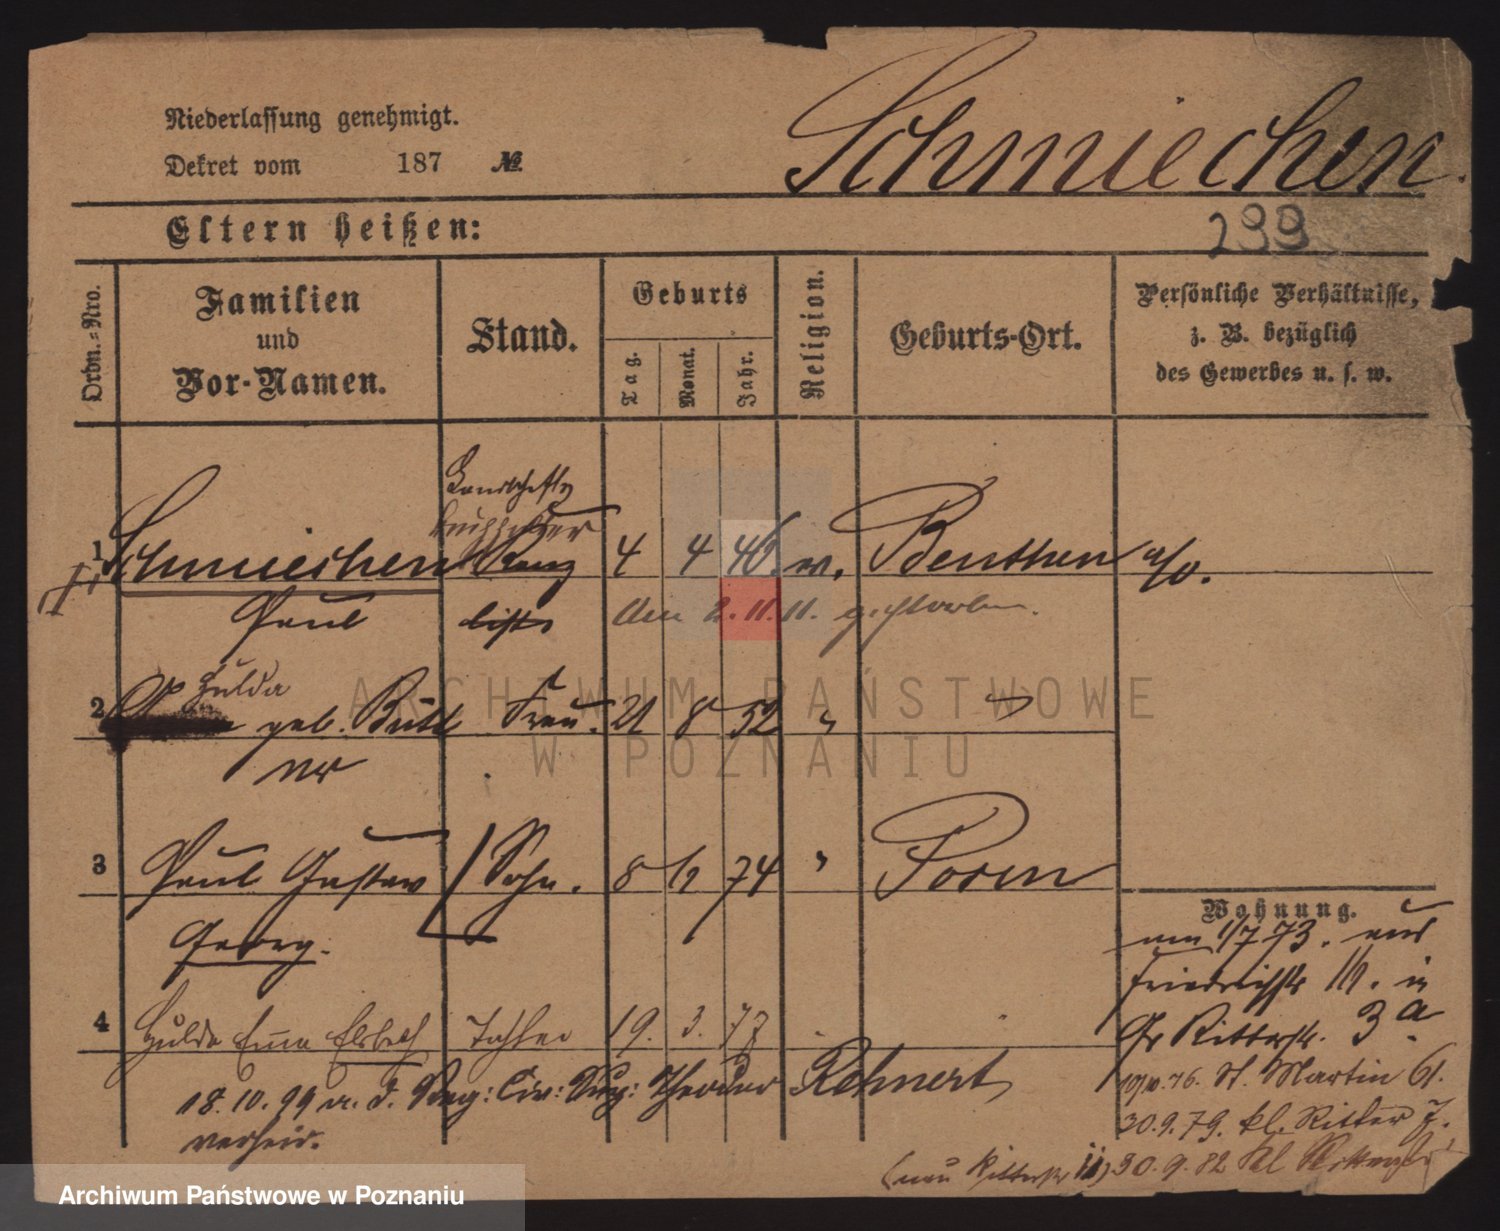 Niederlassung genehmigt.
Dekret vom 187 №
Schmiechen.
299
Eltern heißen:
Ordn.-Nro.
Familien
und
Vor-Namen.
Stand.
Geburts
Tag.
Monat.
Jahr.
Religion.
Geburts-Ort.
Persönliche Verhältnisse,
z. B. bezüglich
des Gewerbes u. s. w.
Landschafts
1 Schmiechen Kanz 4 4 46. ev. Beuthen a/O.
Paul list den 2.11.11. gestorben.
Hulda
2 geb. Bütt Frau. 21 8 52 "
ner
3 Paul Gustav Sohn. 8 12 74 " Posen
Georg.
Wohnung.
um 1/7 73. aus
Friedrichstr. in
Gr Ritterstr. 3a.
4 Hulda Emma Elsbeth Tochter 19. 3. 77
18.10.99 m. d. Reg: Civ: Sup: Theodor Rehnert
verheir.
St. Martin 61.
30.9.79. kl. Ritter 7.
(neu Ritterstr 11) 30.9.82 kl
ARCHIWUM PAŃSTWOWE
W POZNANIU
Archiwum Państwowe w Poznaniu